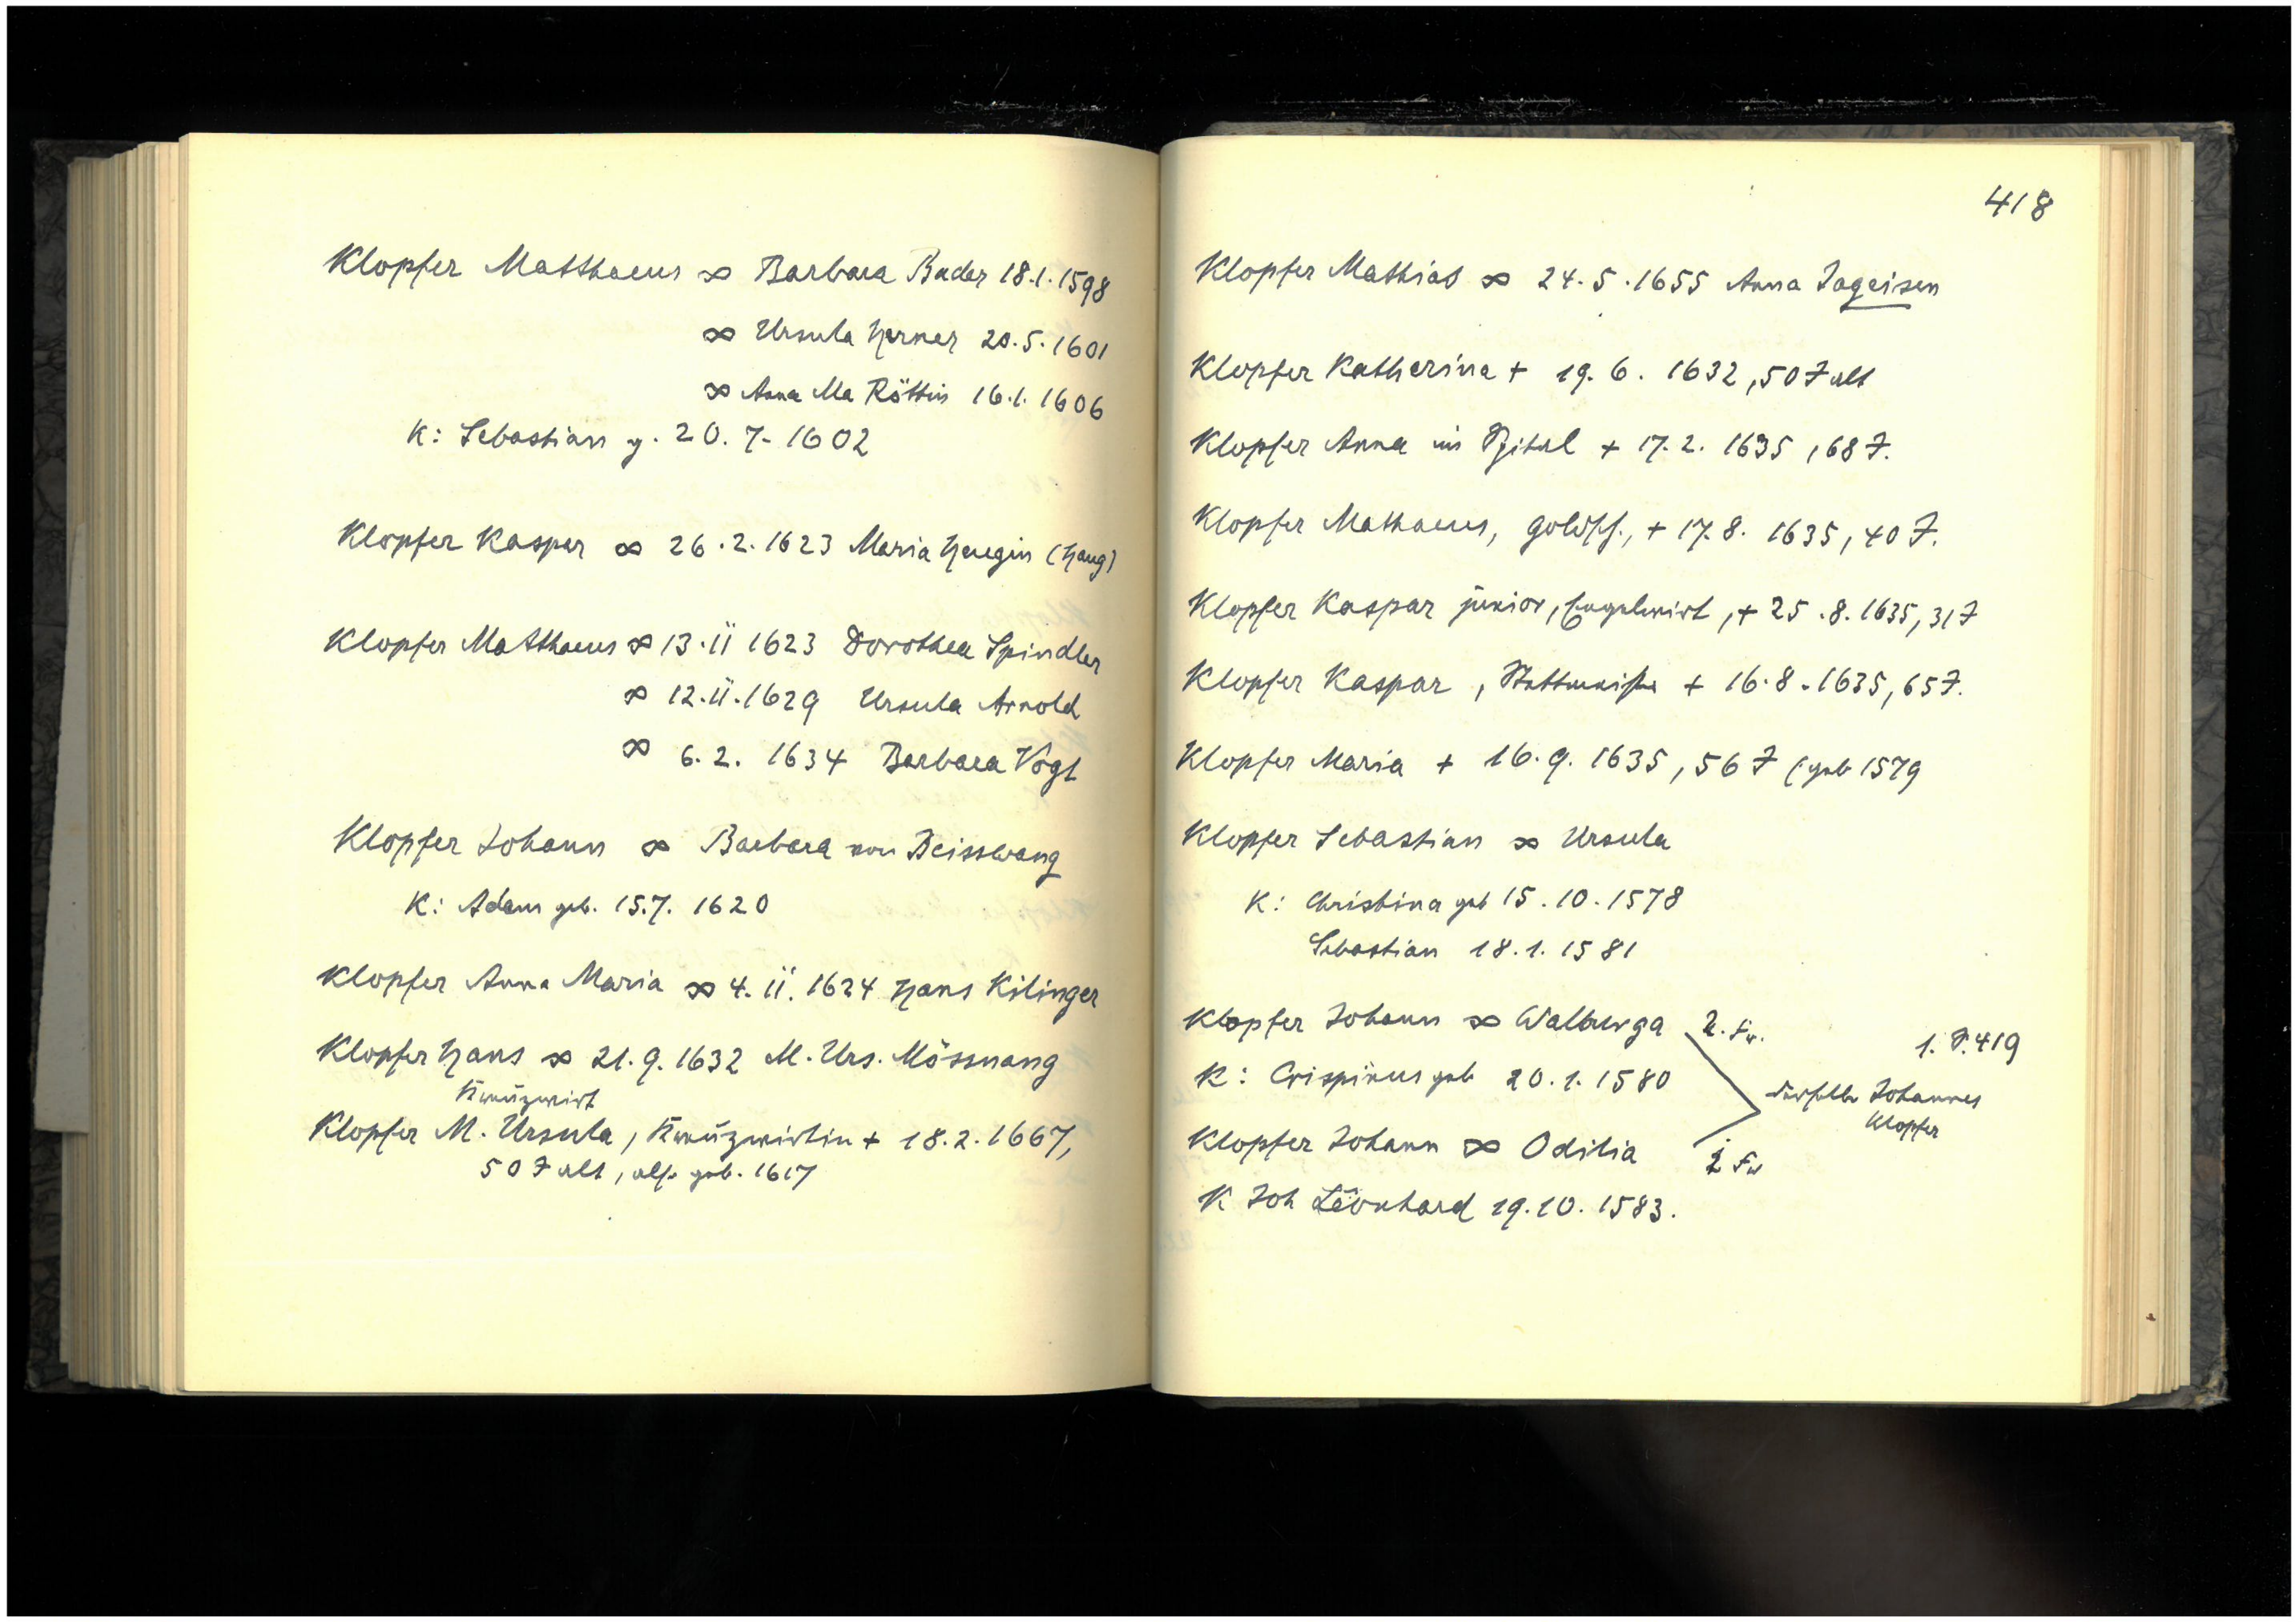 Klopfer Matthaeus ∞ Barbara Bader 18.1.1598
∞ Ursula Herner 20.5.1601
∞ Anna Ma Röttin 16.1.1606
K: Sebastian g. 20.7.1602
Klopfer Kaspar ∞ 26.2.1623 Maria Hengin (Haug)
Klopfer Matthaeus ∞ 13.11 1623 Dorothea Spindler
∞ 12.11.1629 Ursula Arnold
∞ 6.2. 1634 Barbara Vogt
Klopfer Johann ∞ Barbara von Beisswang
K: Adam geb. 15.7. 1620
Klopfer Anna Maria ∞ 4.11.1624 Hans Kilinger
Klopfer Hans ∞ 21.9.1632 M. Urs. Mössnang
Kreuzwirt
Klopfer M. Ursula, Kreuzwirtin + 18.2.1667,
50 J alt, also geb. 1617
418
Klopfer Mathias ∞ 24.5.1655 Anna Jageisen
Klopfer Katharina + 19.6. 1632, 50 J alt
Klopfer Anna im Spital + 17.2. 1635, 68 J.
Klopfer Mathaeus, Goldsch., + 17.8. 1635, 40 J.
Klopfer Kaspar junior, Engelwirt, + 25.8.1635, 31 J
Klopfer Kaspar, + 16.8.1635, 65 J.
Klopfer Maria + 16.9. 1635, 56 J (geb 1579
Klopfer Sebastian ∞ Ursula
K: Christina geb 15.10.1578
Sebastian 18.1.1581
Klopfer Johann ∞ Walburga 2. Fr.
1. S. 419
K: Crispinus geb 20.1.1580
derselbe Johannes
Klopfer
Klopfer Johann ∞ Odilia Fr
K Joh Leonhard 19.10.1583.